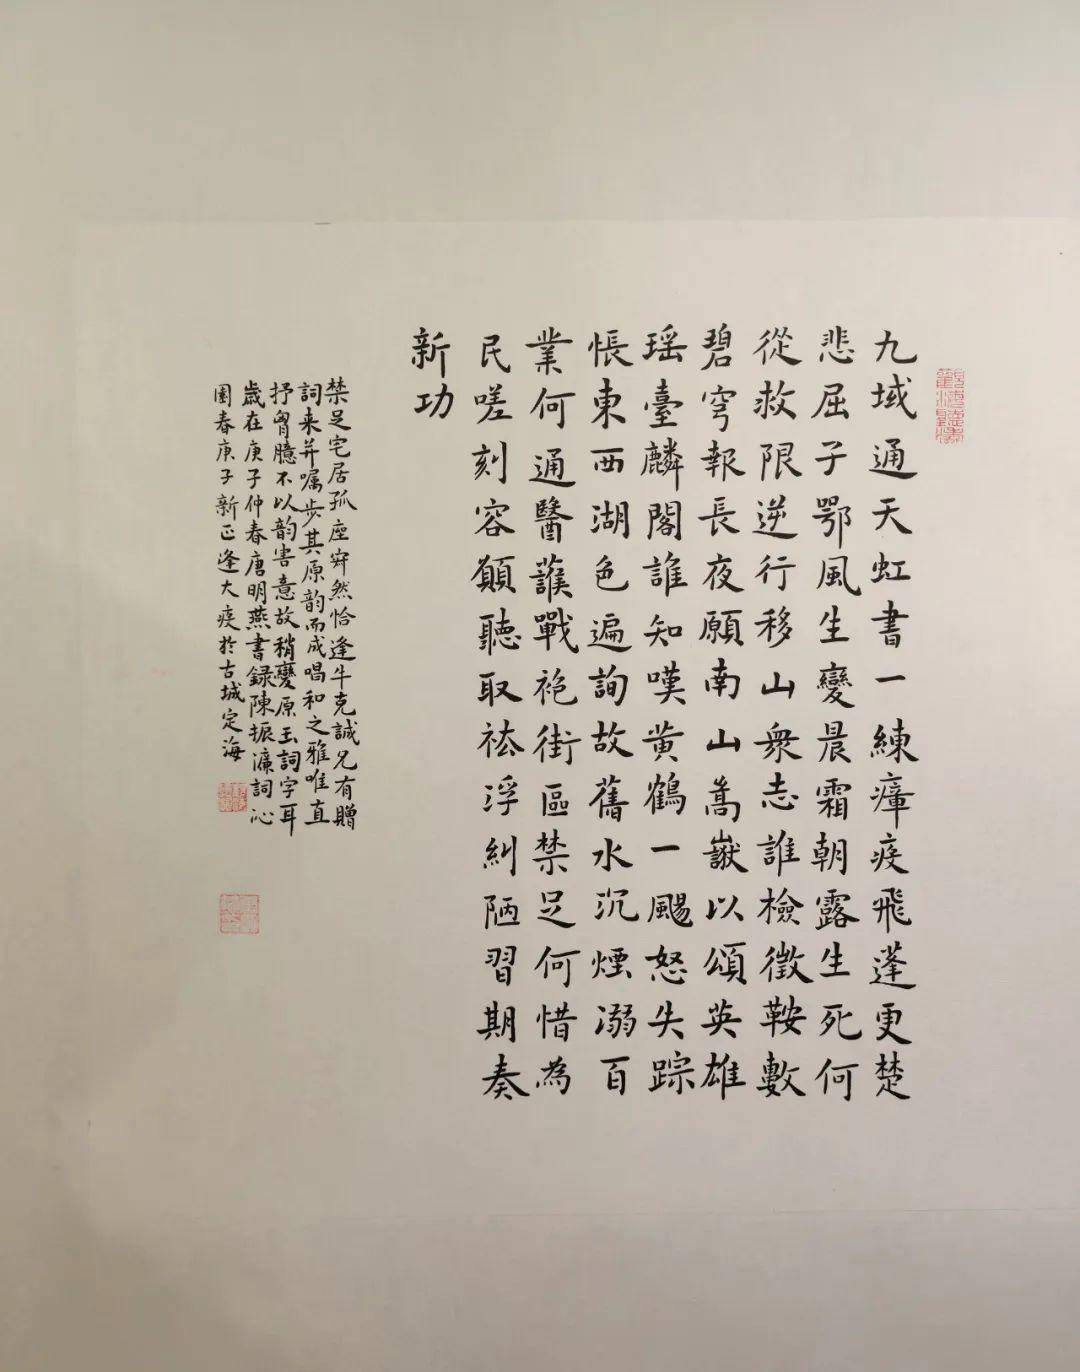 九域通天虹書一練瘴疫飛蓬更楚
悲屈子鄂風生變晨霜朝露生死何
從救限逆行移山衆志誰檢徵鞍數
碧穹報長夜願南山嵩嶽以頌英雄
瑶臺麟閣誰知嘆黄鶴一颺怒失踪
悵東西湖色遍詢故舊水沉煙溺百
業何通醫護戰袍街區禁足何惜為
民嗟刻容顏聽取袪浮糾陋習期奏
新功
禁足宅居孤座窅然恰逢牛克誠兄有贈
詞来并嘱步其原韵而成唱和之雅唯直
抒胷臆不以韵害意故稍變原玉詞字耳
歲在庚子仲春唐明燕書録陳振濂詞沁
園春庚子新正逢大疫於古城定海